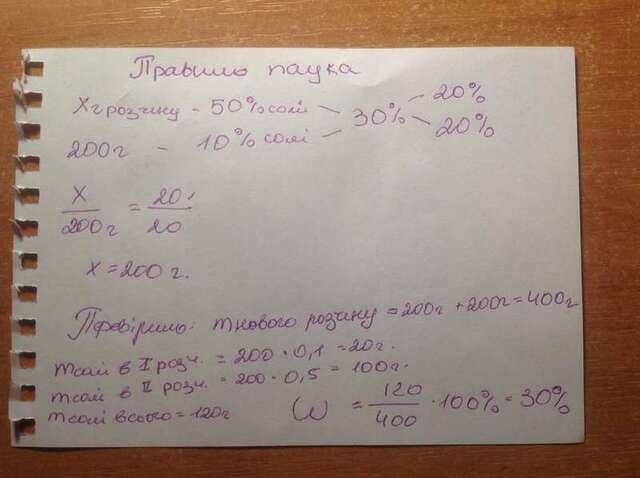 Правило паука
Xг розчину - 50% солі 30% 20%
200г - 10% солі 20%
X/200г = 20/20
x = 200г.
Перевіримо: m нового розчину = 200г + 200г = 400г
m солі в I розч. = 200 · 0,1 = 20г.
m солі в II розч. = 200 · 0,5 = 100г.
m солі всього = 120г
ω = 120/400 · 100% = 30%